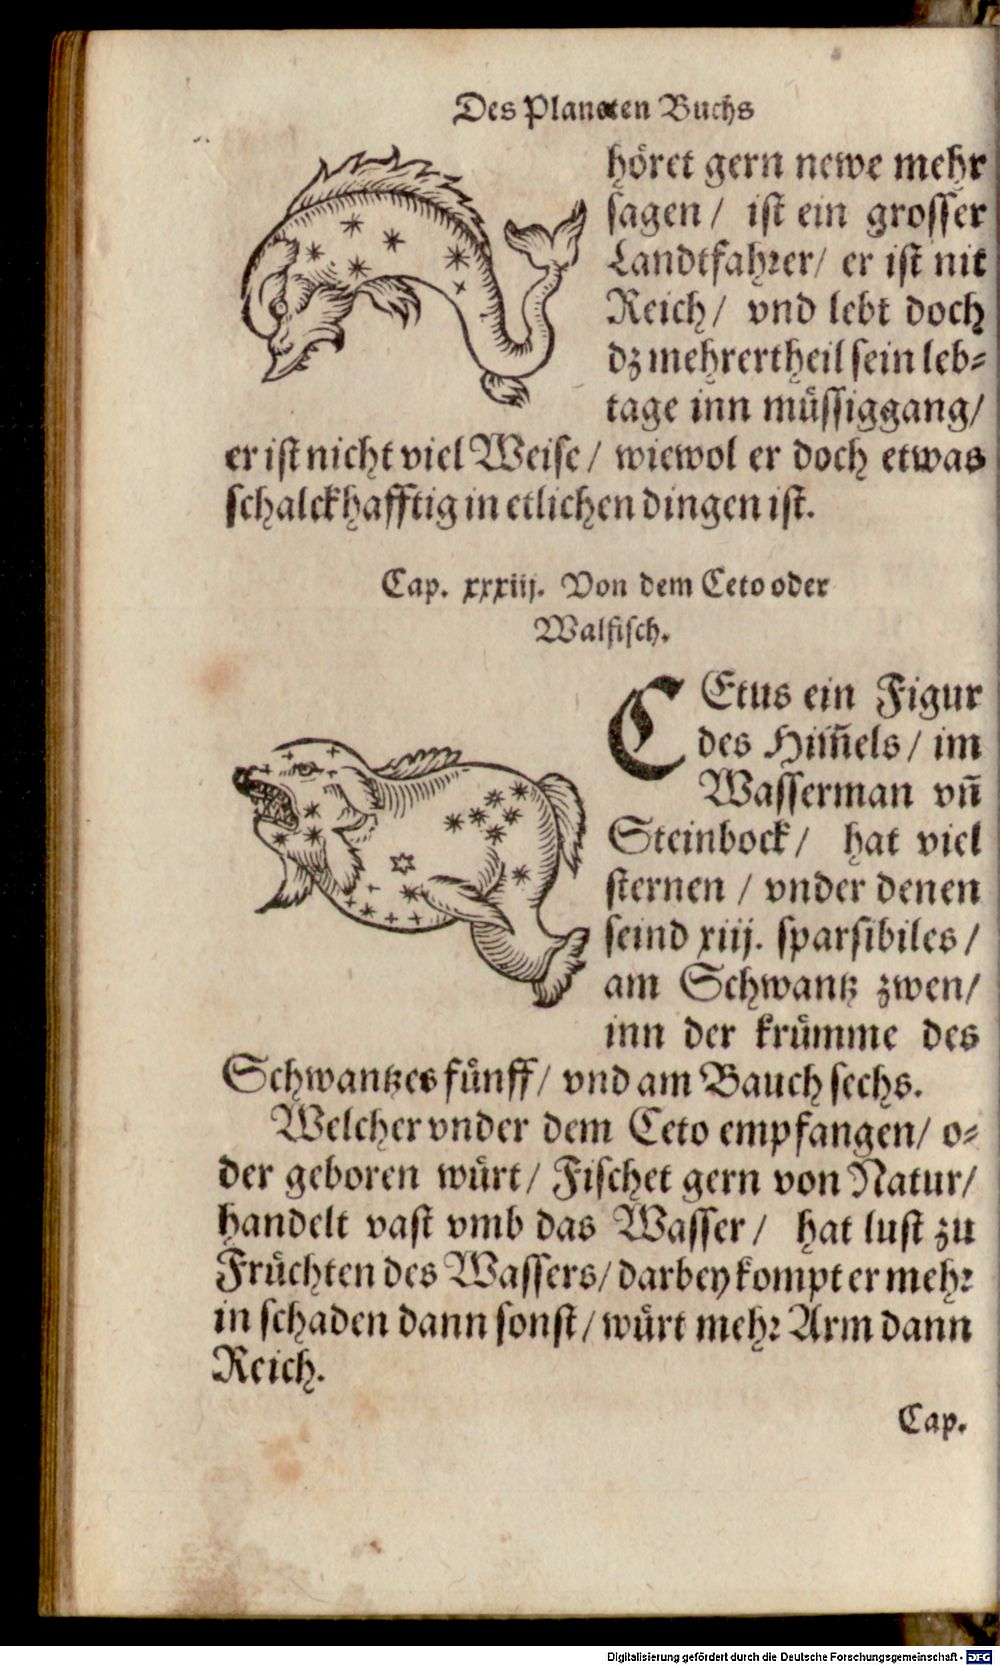 Des Planeten Buchs
höret gern newe mehr
sagen / ist ein grosser
Landtfahrer / er ist nit
Reich / vnd lebt doch
dz mehrertheil sein leb-
tage inn müssiggang /
er ist nicht viel Weise / wiewol er doch etwas
schalckhafftig in etlichen dingen ist.
Cap. xxxiij. Von dem Ceto oder
Walfisch.
CEtus ein Figur
des Him̃els / im
Wasserman vñ
Steinbock / hat viel
sternen / vnder denen
seind xiij. sparsibiles /
am Schwantz zwen /
inn der krümme des
Schwantzes fünff / vnd am Bauch sechs.
Welcher vnder dem Ceto empfangen / o-
der geboren würt / Fischet gern von Natur /
handelt vast vmb das Wasser / hat lust zu
Früchten des Wassers / darbey kompt er mehr
in schaden dann sonst / würt mehr Arm dann
Reich.
Cap.
Digitalisierung gefördert durch die Deutsche Forschungsgemeinschaft - DFG